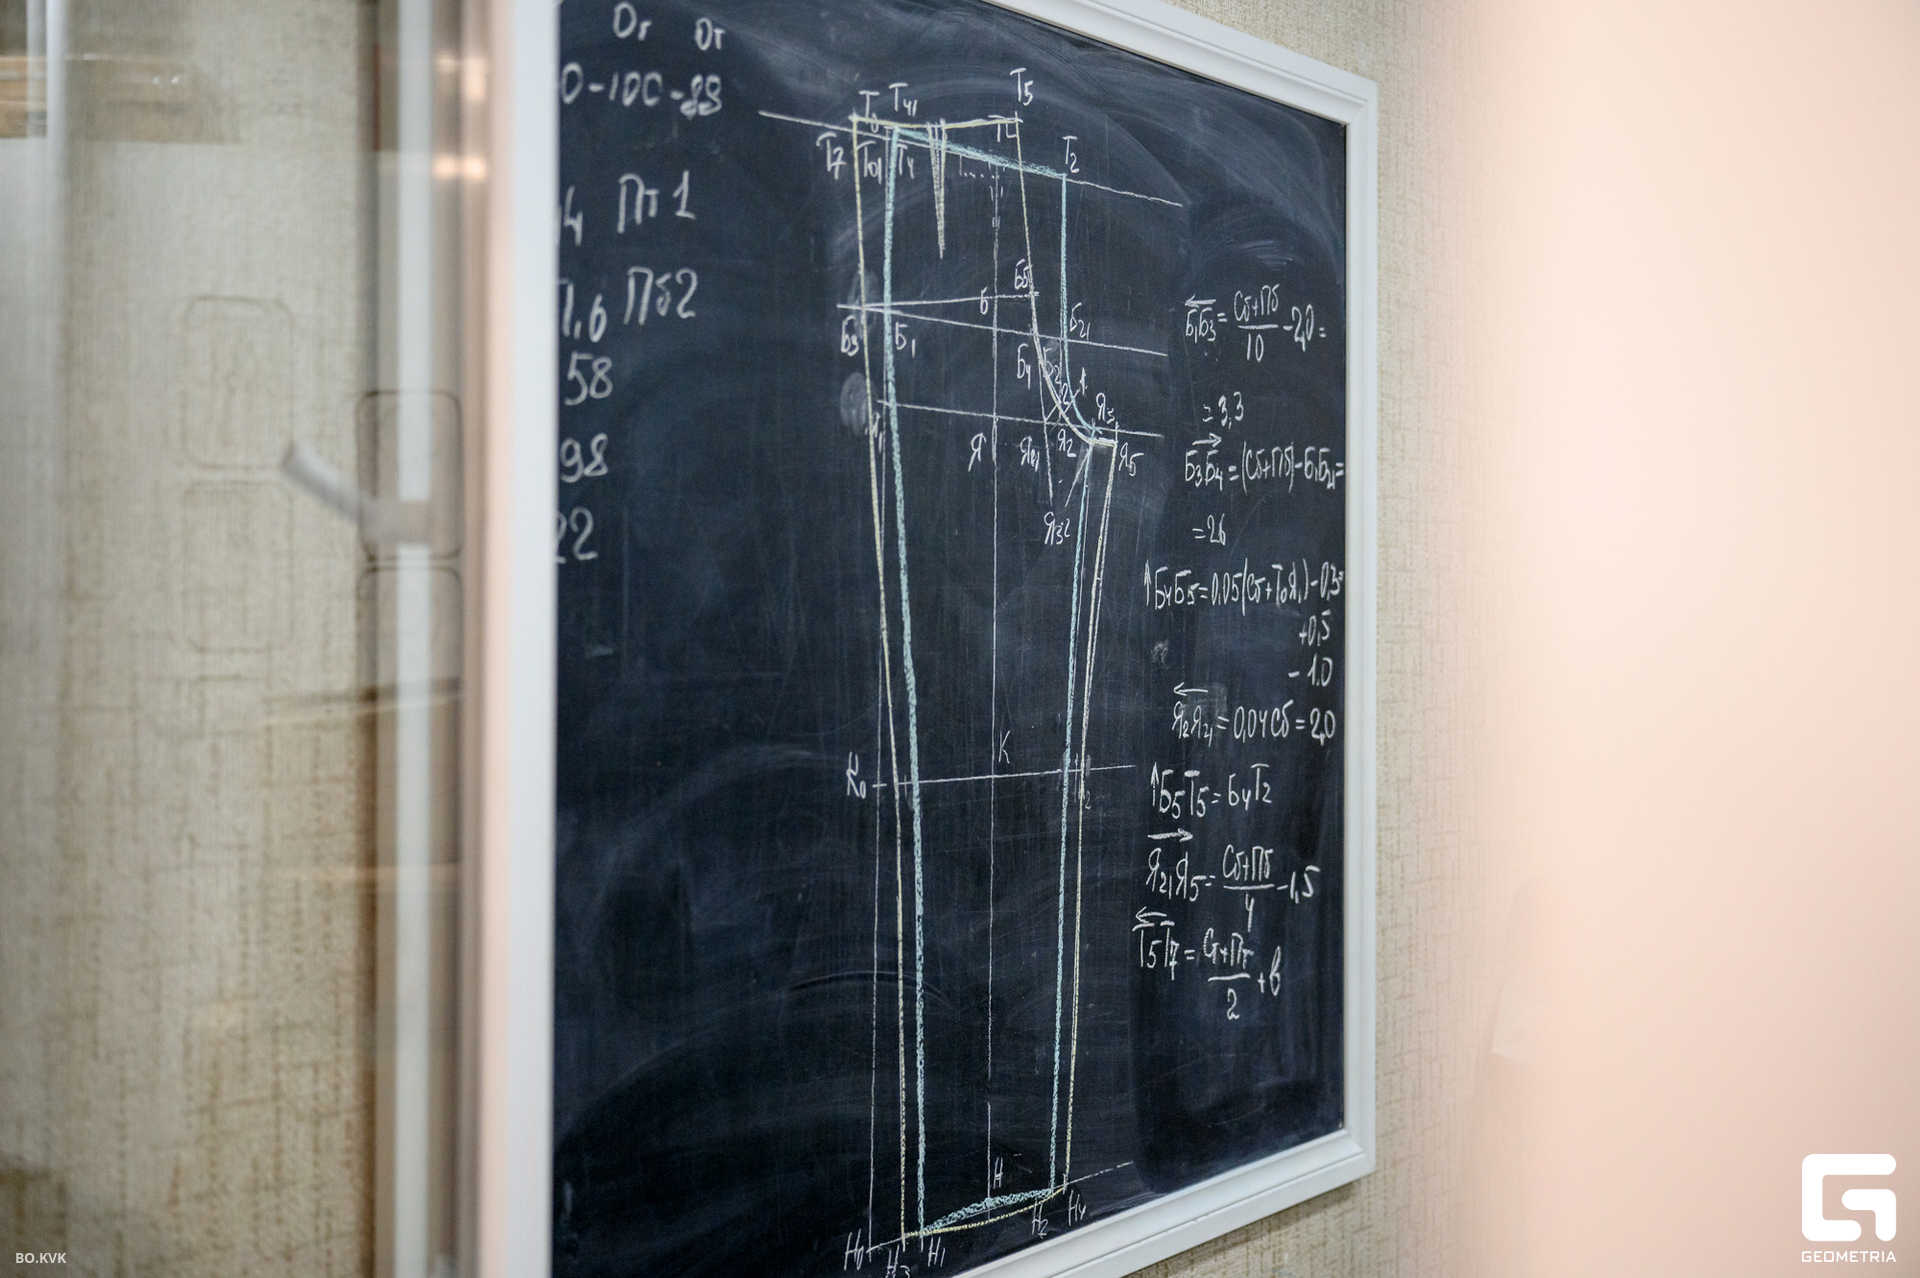 От От
0-100-88
4 Пт 1
1,6 Пб2
58
98
22
Т41 Т5
Т7 Т01 Т4 Т2
Б5
Б
Б3 Б1 Б21
Б4
Я3
Я Я21 Я2 Я5
Я32
К
К0
Н
Н0 Н3 Н1 Н2 Н4
Б1Б3 = Сб+Пб/10 - 2,0 =
= 3,3
Б3Б4 = (Сб+Пб) - Б1Б21 =
= 26
↑Б4Б5 = 0,05(Сб+Т0Я1) - 0,3 =
+0,5
- 1.0
Я2Я21 = 0,04Сб = 2,0
↑Б5Т5 = Б4Т2
Я21Я5 = Сб+Пб/4 - 1,5
Т5Т7 = Ст+Пт/2 + в
BO.KVK
GEOMETRIA